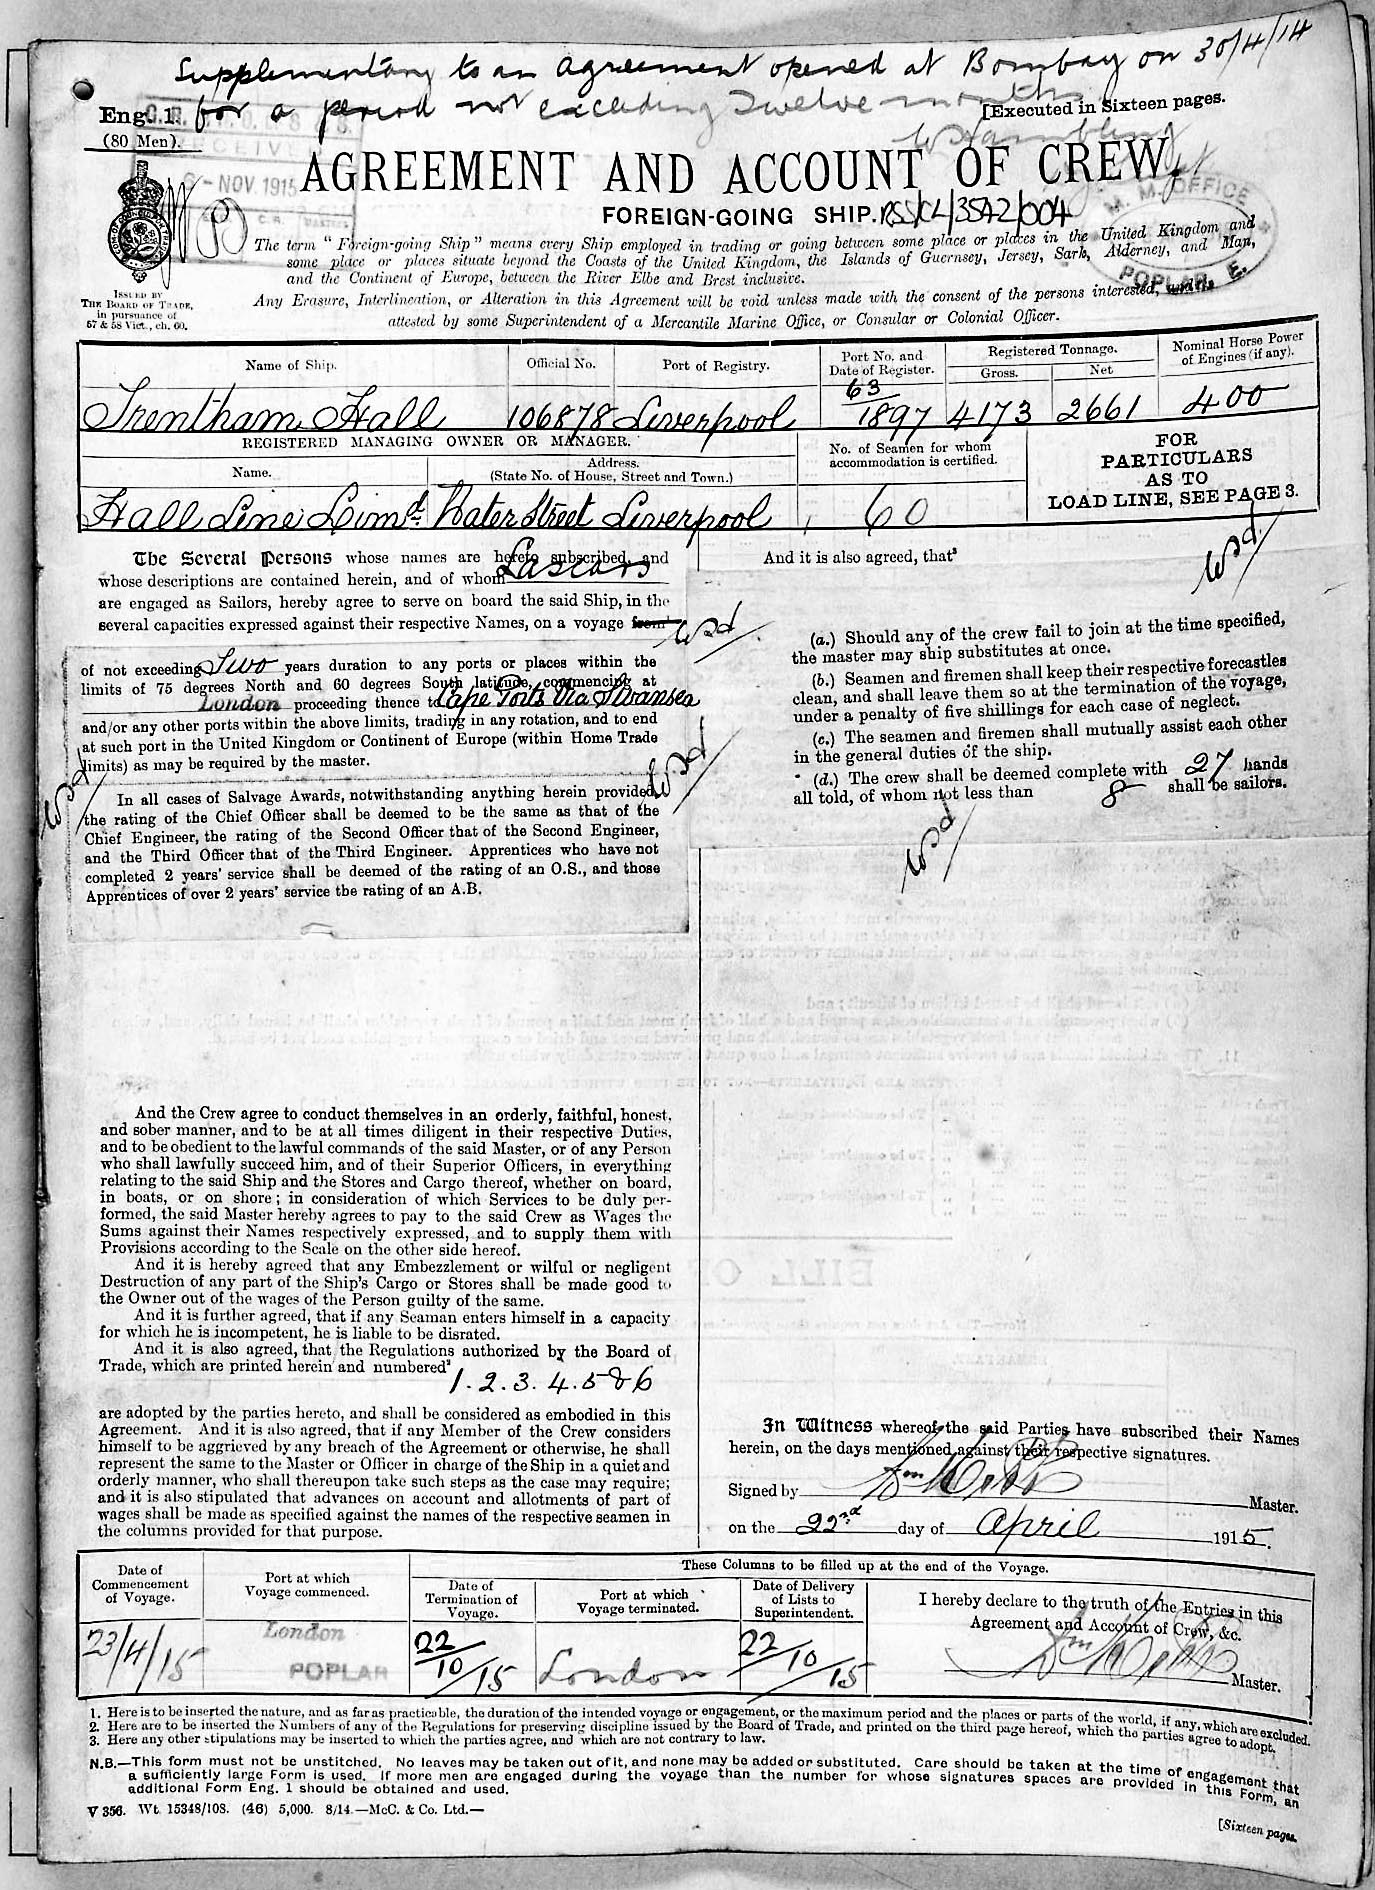 Supplementary to an Agreement opened at Bombay on 30/4/14
for a period not exceeding Twelve months
Eng. 1.
[Executed in Sixteen pages.
(80 Men).
NOV. 1915
AGREEMENT AND ACCOUNT OF CREW.
FOREIGN-GOING SHIP. RSS/CL/3542/004
M. M. OFFICE
POPLAR. E.
The term "Foreign-going Ship" means every Ship employed in trading or going between some place or places in the United Kingdom and
some place or places situate beyond the Coasts of the United Kingdom, the Islands of Guernsey, Jersey, Sark, Alderney, and Man,
and the Continent of Europe, between the River Elbe and Brest inclusive.
Any Erasure, Interlineation, or Alteration in this Agreement will be void unless made with the consent of the persons interested,
attested by some Superintendent of a Mercantile Marine Office, or Consular or Colonial Officer.
ISSUED BY
THE BOARD OF TRADE,
in pursuance of
57 & 58 Vict., ch. 60.
Name of Ship. Official No. Port of Registry. Port No. and Date of Register. Registered Tonnage. Gross. Net Nominal Horse Power of Engines (if any).
Trentham Hall 106878 Liverpool 63/1897 4173 2661 400
REGISTERED MANAGING OWNER OR MANAGER.
Name. Address. (State No. of House, Street and Town.)
No. of Seamen for whom accommodation is certified.
FOR PARTICULARS AS TO LOAD LINE, SEE PAGE 3.
Hall Line Limd. Water Street Liverpool 60
The Several Persons whose names are hereto subscribed, and
whose descriptions are contained herein, and of whom Lascars
are engaged as Sailors, hereby agree to serve on board the said Ship, in the
several capacities expressed against their respective Names, on a voyage from¹
of not exceeding Two years duration to any ports or places within the
limits of 75 degrees North and 60 degrees South latitude, commencing at
London proceeding thence to Cape Ports Via Swansea
and/or any other ports within the above limits, trading in any rotation, and to end
at such port in the United Kingdom or Continent of Europe (within Home Trade
limits) as may be required by the master.
In all cases of Salvage Awards, notwithstanding anything herein provided,
the rating of the Chief Officer shall be deemed to be the same as that of the
Chief Engineer, the rating of the Second Officer that of the Second Engineer,
and the Third Officer that of the Third Engineer. Apprentices who have not
completed 2 years' service shall be deemed of the rating of an O.S., and those
Apprentices of over 2 years' service the rating of an A.B.
And the Crew agree to conduct themselves in an orderly, faithful, honest,
and sober manner, and to be at all times diligent in their respective Duties,
and to be obedient to the lawful commands of the said Master, or of any Person
who shall lawfully succeed him, and of their Superior Officers, in everything
relating to the said Ship and the Stores and Cargo thereof, whether on board,
in boats, or on shore; in consideration of which Services to be duly per-
formed, the said Master hereby agrees to pay to the said Crew as Wages the
Sums against their Names respectively expressed, and to supply them with
Provisions according to the Scale on the other side hereof.
And it is hereby agreed that any Embezzlement or wilful or negligent
Destruction of any part of the Ship's Cargo or Stores shall be made good to
the Owner out of the wages of the Person guilty of the same.
And it is further agreed, that if any Seaman enters himself in a capacity
for which he is incompetent, he is liable to be disrated.
And it is also agreed, that the Regulations authorized by the Board of
Trade, which are printed herein and numbered²
1. 2. 3. 4. 5 & 6
are adopted by the parties hereto, and shall be considered as embodied in this
Agreement. And it is also agreed, that if any Member of the Crew considers
himself to be aggrieved by any breach of the Agreement or otherwise, he shall
represent the same to the Master or Officer in charge of the Ship in a quiet and
orderly manner, who shall thereupon take such steps as the case may require;
and it is also stipulated that advances on account and allotments of part of
wages shall be made as specified against the names of the respective seamen in
the columns provided for that purpose.
And it is also agreed, that³
(a.) Should any of the crew fail to join at the time specified,
the master may ship substitutes at once.
(b.) Seamen and firemen shall keep their respective forecastles
clean, and shall leave them so at the termination of the voyage,
under a penalty of five shillings for each case of neglect.
(c.) The seamen and firemen shall mutually assist each other
in the general duties of the ship.
(d.) The crew shall be deemed complete with 27 hands
all told, of whom not less than 8 shall be sailors.
In Witness whereof the said Parties have subscribed their Names
herein, on the days mentioned against their respective signatures.
Signed by Master.
on the 22nd day of April 1915.
Date of Commencement of Voyage. Port at which Voyage commenced. These Columns to be filled up at the end of the Voyage.
Date of Termination of Voyage. Port at which Voyage terminated. Date of Delivery of Lists to Superintendent.
I hereby declare to the truth of the Entries in this
Agreement and Account of Crew, &c.
23/4/15 London POPLAR 22/10/15 London 22/10/15
Master.
1. Here is to be inserted the nature, and as far as practicable, the duration of the intended voyage or engagement, or the maximum period and the places or parts of the world, if any, which are excluded.
2. Here are to be inserted the Numbers of any of the Regulations for preserving discipline issued by the Board of Trade, and printed on the third page hereof, which the parties agree to adopt.
3. Here any other stipulations may be inserted to which the parties agree, and which are not contrary to law.
N.B.—This form must not be unstitched. No leaves may be taken out of it, and none may be added or substituted. Care should be taken at the time of engagement that
a sufficiently large Form is used. If more men are engaged during the voyage than the number for whose signatures spaces are provided in this Form, an
additional Form Eng. 1 should be obtained and used.
V 356. Wt. 15348/108. (46) 5,000. 8/14.—McC. & Co. Ltd.—
[Sixteen pages.